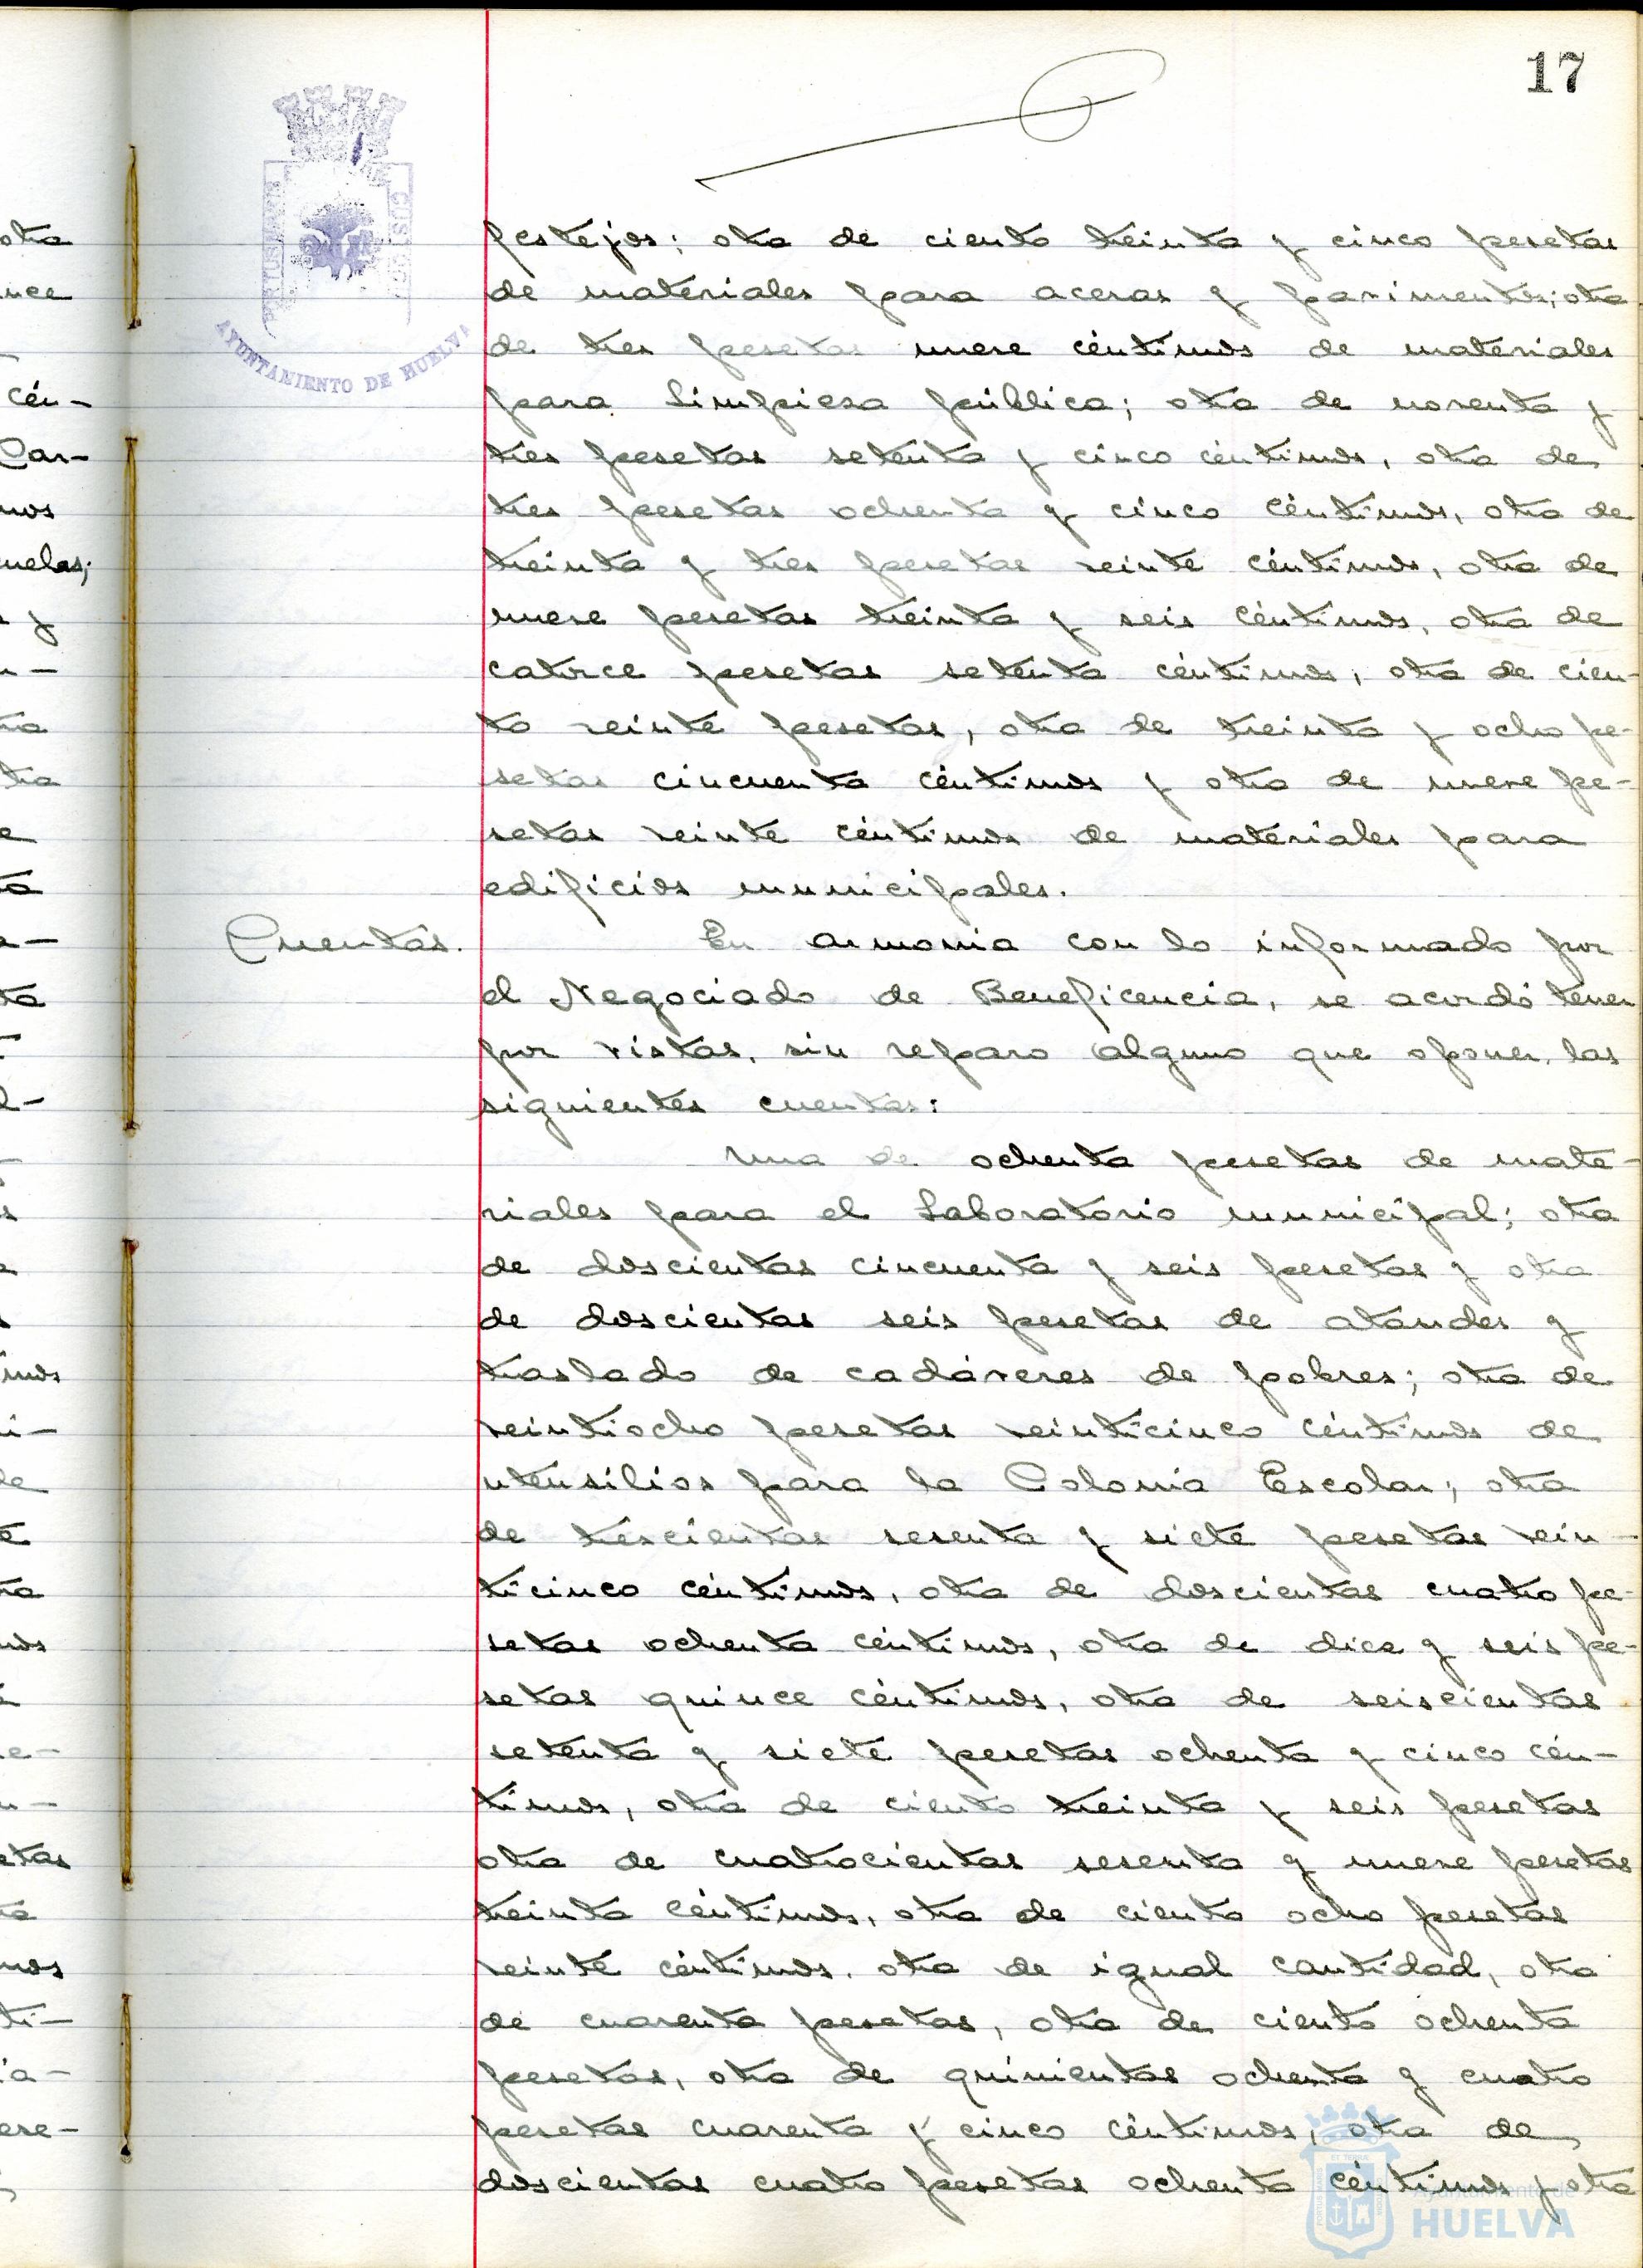 17
festejos; otra de ciento treinta y cinco pesetas
de materiales para aceras y pavimentos; otra
de tres pesetas nueve céntimos de materiales
para limpieza pública; otra de noventa y
tres pesetas setenta y cinco céntimos, otra de
tres pesetas ochenta y cinco céntimos, otra de
treinta y tres pesetas veinte céntimos, otra de
nueve pesetas treinta y seis céntimos, otra de
catorce pesetas setenta céntimos, otra de cien-
to veinte pesetas, otra de treinta y ocho pe-
setas cincuenta céntimos y otra de nueve pe-
setas veinte céntimos de materiales para
edificios municipales.
Cuentas.
En armonia con lo informado por
el Negociado de Beneficencia, se acordó tener
por vistas, sin reparo alguno que oponer, las
siguientes cuentas:
Una de ochenta pesetas de mate-
riales para el Laboratorio municipal; otra
de doscientas cincuenta y seis pesetas y otra
de doscientas seis pesetas de ataudes y
traslado de cadáveres de pobres; otra de
veintiocho pesetas veinticinco céntimos de
utensilios para la Colonia Escolar; otra
de trescientas sesenta y siete pesetas vein-
ticinco céntimos, otra de doscientas cuatro pe-
setas ochenta céntimos, otra de diez y seis pe-
setas quince céntimos, otra de seiscientas
setenta y siete pesetas ochenta y cinco cén-
timos, otra de ciento treinta y seis pesetas
otra de cuatrocientas sesenta y nueve pesetas
treinta céntimos, otra de ciento ocho pesetas
veinte céntimos, otra de igual cantidad, otra
de cuarenta pesetas, otra de ciento ochenta
pesetas, otra de quinientas ochenta y cuatro
pesetas cuarenta y cinco céntimos, otra de
doscientas cuatro pesetas ochenta céntimos y otra
AYUNTAMIENTO DE HUELVA
Ayuntamiento de
HUELVA